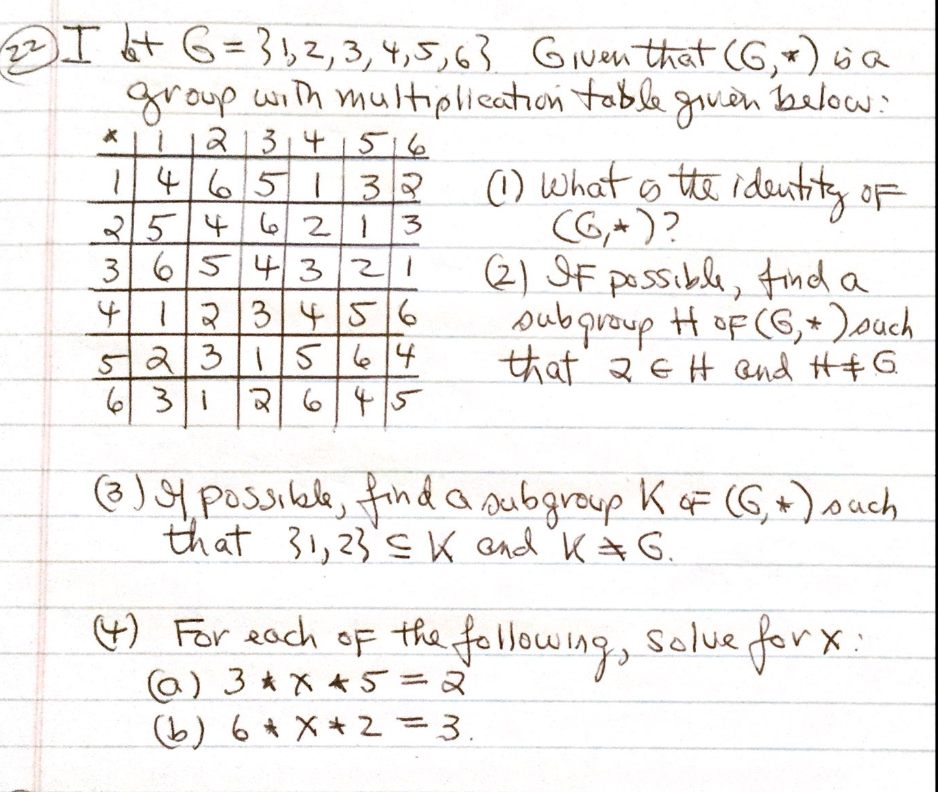 22 I let G = {1, 2, 3, 4, 5, 6} Given that (G, *) is a
group with multiplication table given below:
* | 1 | 2 | 3 | 4 | 5 | 6
1 | 4 | 6 | 5 | 1 | 3 | 2
2 | 5 | 4 | 6 | 2 | 1 | 3
3 | 6 | 5 | 4 | 3 | 2 | 1
4 | 1 | 2 | 3 | 4 | 5 | 6
5 | 2 | 3 | 1 | 5 | 6 | 4
6 | 3 | 1 | 2 | 6 | 4 | 5
(1) What is the identity of
(G, *)?
(2) If possible, find a
subgroup H of (G, *) such
that 2 ∈ H and H ≠ G.
(3) If possible, find a subgroup K of (G, *) such
that {1, 2} ⊆ K and K ≠ G.
(4) For each of the following, solve for x:
(a) 3 * x * 5 = 2
(b) 6 * x * 2 = 3.